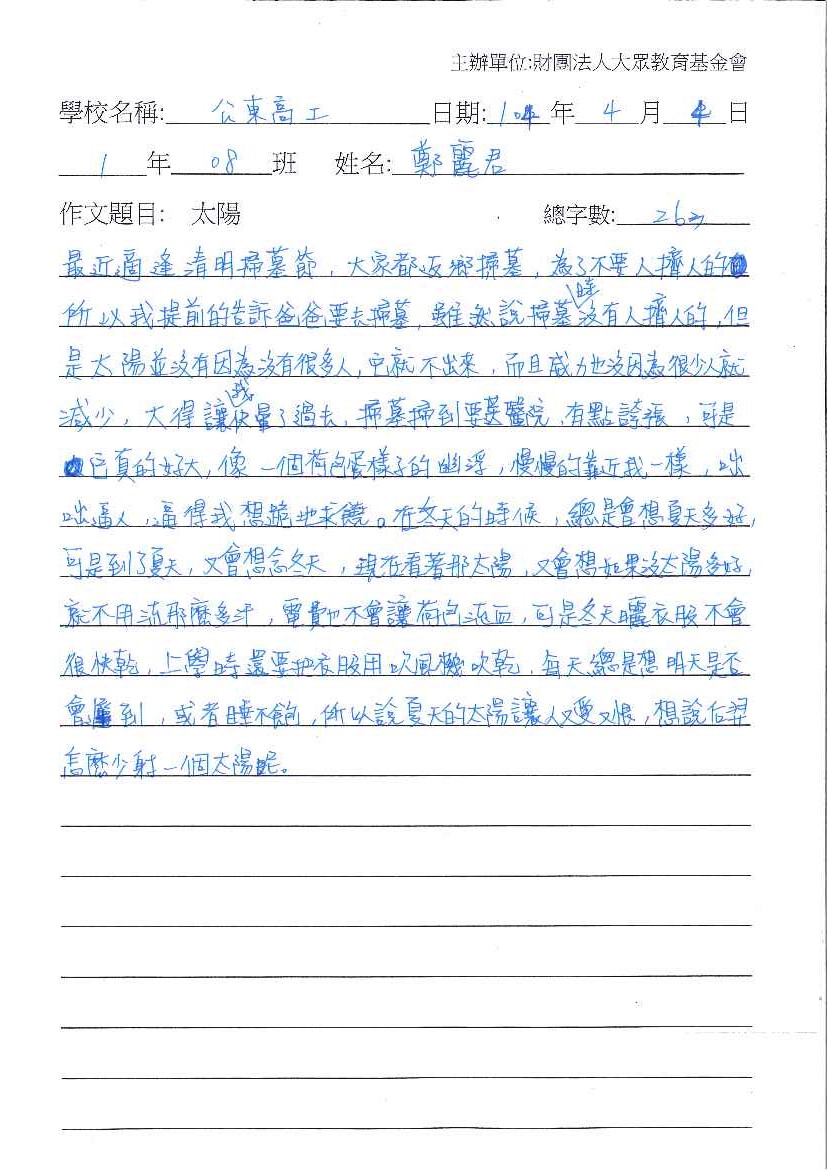 主辦單位:財團法人大眾教育基金會
學校名稱: 公東高工 日期: 104 年 4 月 4 日
1 年 08 班 姓名: 鄭麗君
作文題目: 太陽 總字數: 263
最近適逢清明掃墓節，大家都返鄉掃墓，為了不要人擠人的
所以我提前的告訴爸爸要去掃墓，雖然說掃墓時沒有人擠人的，但
是太陽並沒有因為沒有很多人，它就不出來，而且威力也沒因為很少以就
減少，大得讓我快暈了過去，掃墓掃到要送醫院，有點誇張，可是
它真的好大，像一個荷包蛋樣子的幽浮，慢慢的靠近我一樣，咄
咄逼人，逼得我想跪地求饒。在冬天的時候，總是會想夏天多好，
可是到了夏天，又會想念冬天，現在看著那太陽，又會想如果沒太陽多好，
就不用流那麼多汗，電費也不會讓荷包流血，可是冬天曬衣服不會
很快乾，上學時還要把衣服用吹風機吹乾，每天總是想明天是否
會遲到，或者睡不飽，所以說夏天的太陽讓人又愛又恨，想說后羿
怎麼少射一個太陽呢。